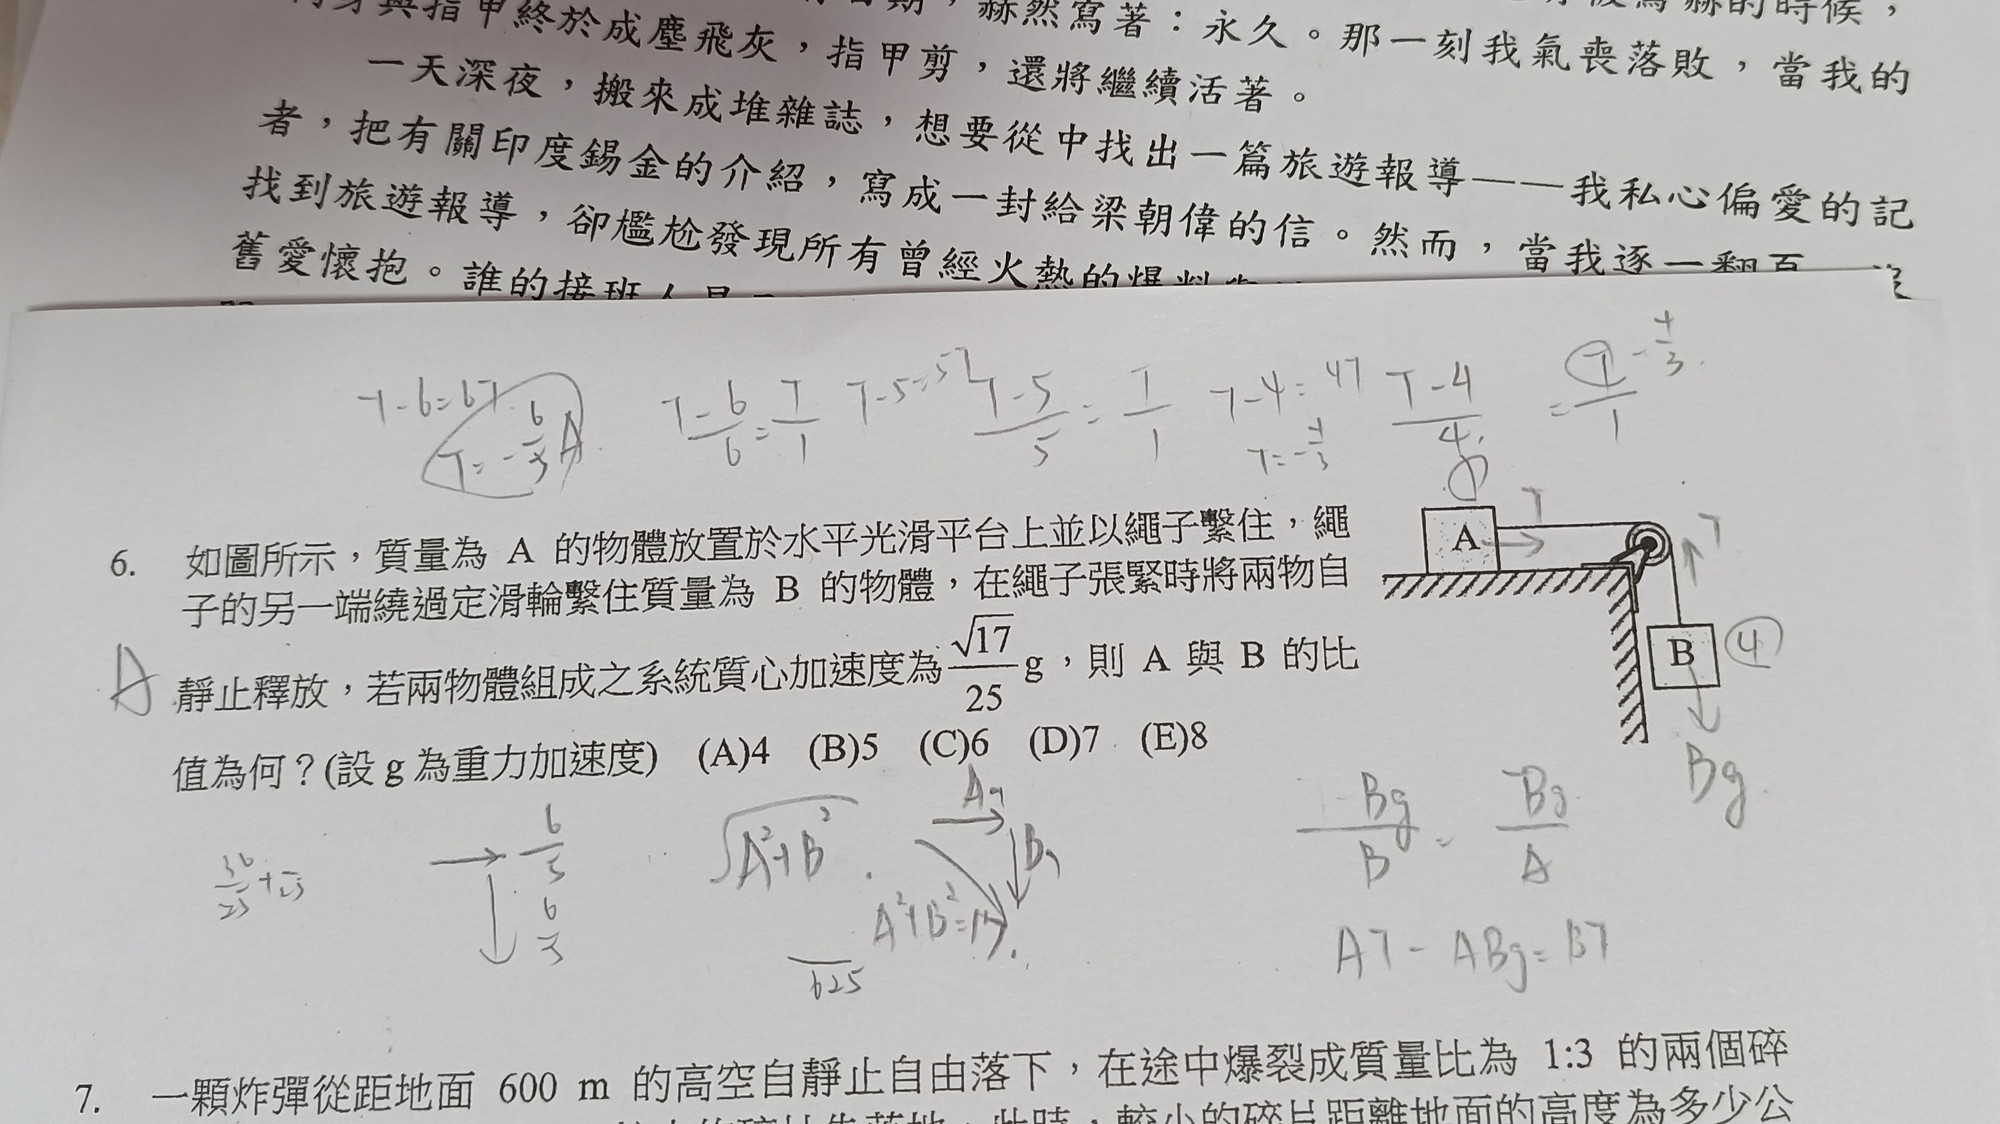 身與指甲終於成塵飛灰，指甲剪，還將繼續活著。
赫然寫著：永久。那一刻我氣喪落敗，當我的
的時候，
一天深夜，搬來成堆雜誌，想要從中找出一篇旅遊報導——我私心偏愛的記
者，把有關印度錫金的介紹，寫成一封給梁朝偉的信。然而，當我逐一翻頁
找到旅遊報導，卻尷尬發現所有曾經火熱的爆料
舊愛懷抱。誰的接班人是
T-6=6T
T=-6/5 A
T-6/6=T/1
T-5=5T
T-5/5=T/1
T-4=4T
T=-4/3
T-4/4
=T/1
-4/3
6. 如圖所示，質量為 A 的物體放置於水平光滑平台上並以繩子繫住，繩
子的另一端繞過定滑輪繫住質量為 B 的物體，在繩子張緊時將兩物自
A 靜止釋放，若兩物體組成之系統質心加速度為 √17/25 g，則 A 與 B 的比
值為何？(設 g 為重力加速度) (A)4 (B)5 (C)6 (D)7 (E)8
A
T
T
B
4
Bg
36/25+
6/5
6/5
√A²+B²
Ag
Bg
A²+B²=17
625
Bg/B=Bg/A
AT-ABg=BT
7. 一顆炸彈從距地面 600 m 的高空自靜止自由落下，在途中爆裂成質量比為 1:3 的兩個碎
此時，較小的碎片距離地面的高度為多少公